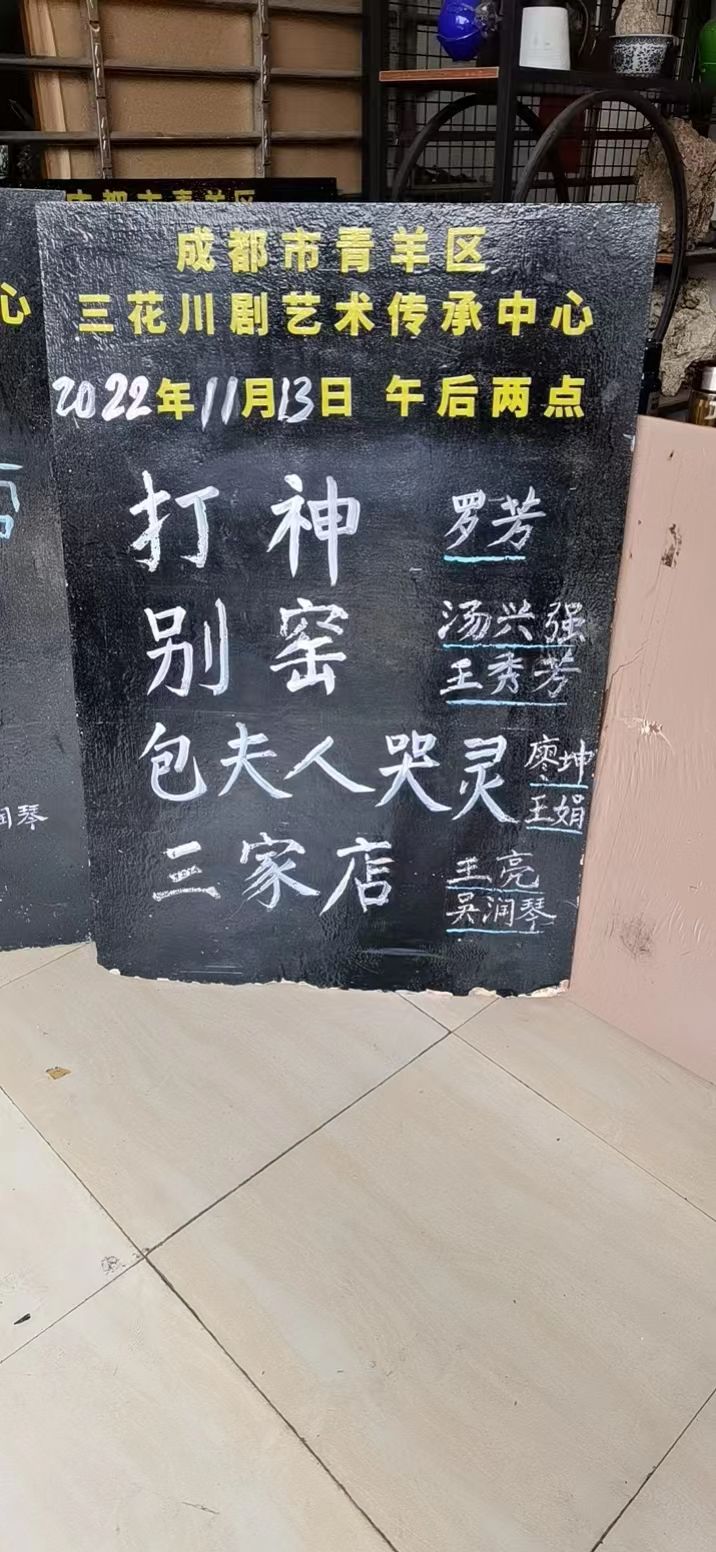 成都市青羊区
三花川剧艺术传承中心
2022年11月13日 午后两点
打神 罗芳
别窑 汤兴强
王秀芳
包夫人哭灵 廖坤
王娟
三家店 王亮
吴润琴
成都市青羊区
心
润琴